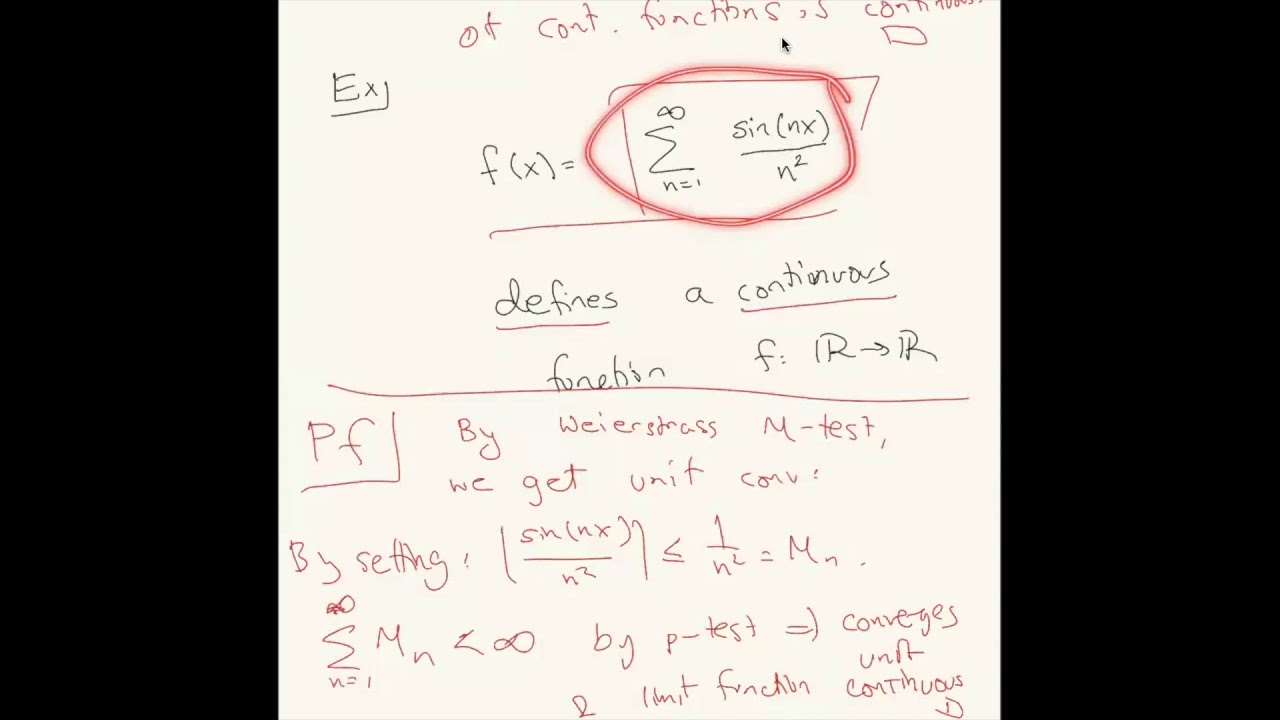 of cont. functions is continuous.
Ex
f(x) = \sum_{n=1}^{\infty} \frac{\sin(nx)}{n^2}
defines a continuous
function f: ℝ → ℝ
Pf By Weierstrass M-test,
we get unif conv:
By setting: \left| \frac{\sin(nx)}{n^2} \right| ≤ \frac{1}{n^2} = M_n.
\sum_{n=1}^{\infty} M_n < ∞ by p-test ⇒ converges
unif
& limit function continuous